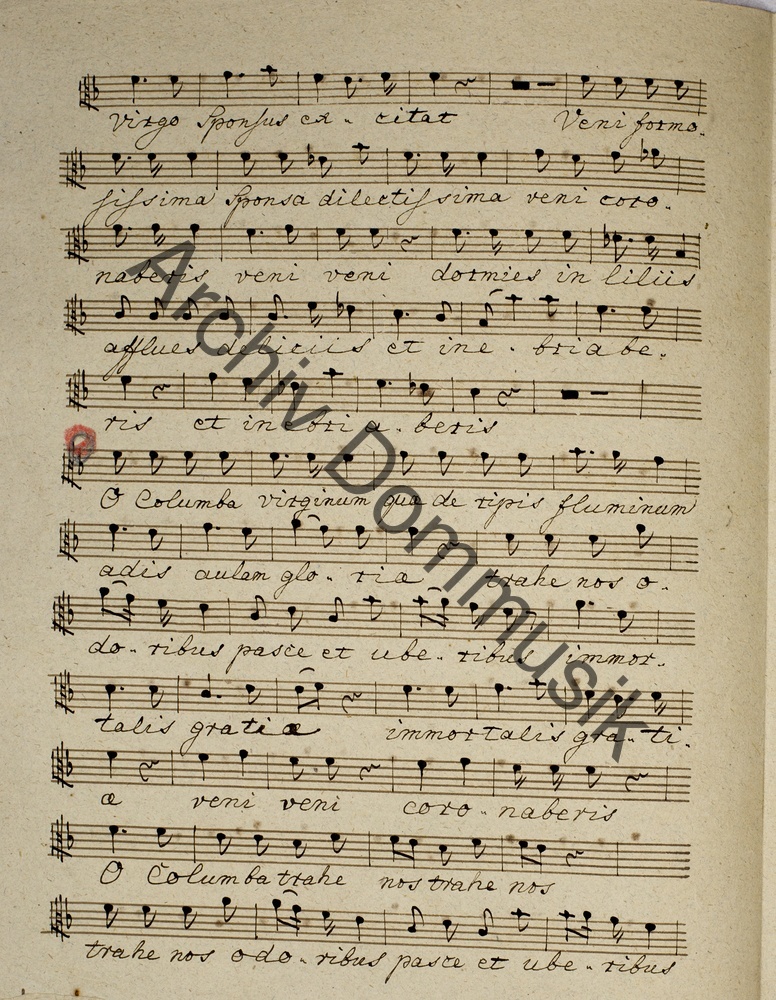 virgo Sponsus ex - citat Veni formo-
sissima Sponsa dilectissima veni coro-
naberis veni veni dormies in liliis
afflues deliciis et ine - briabe-
ris et inebri a - beris
O Columba virginum quæ de ripis fluminum
adis aulam glo - riæ trahe nos o-
do - ribus pasce et ube - ribus immor-
talis gratiæ immortalis gra - ti-
æ veni veni coro - naberis
O Columba trahe nos trahe nos
trahe nos odo - ribus pasce et ube - ribus
Archiv Dommusik